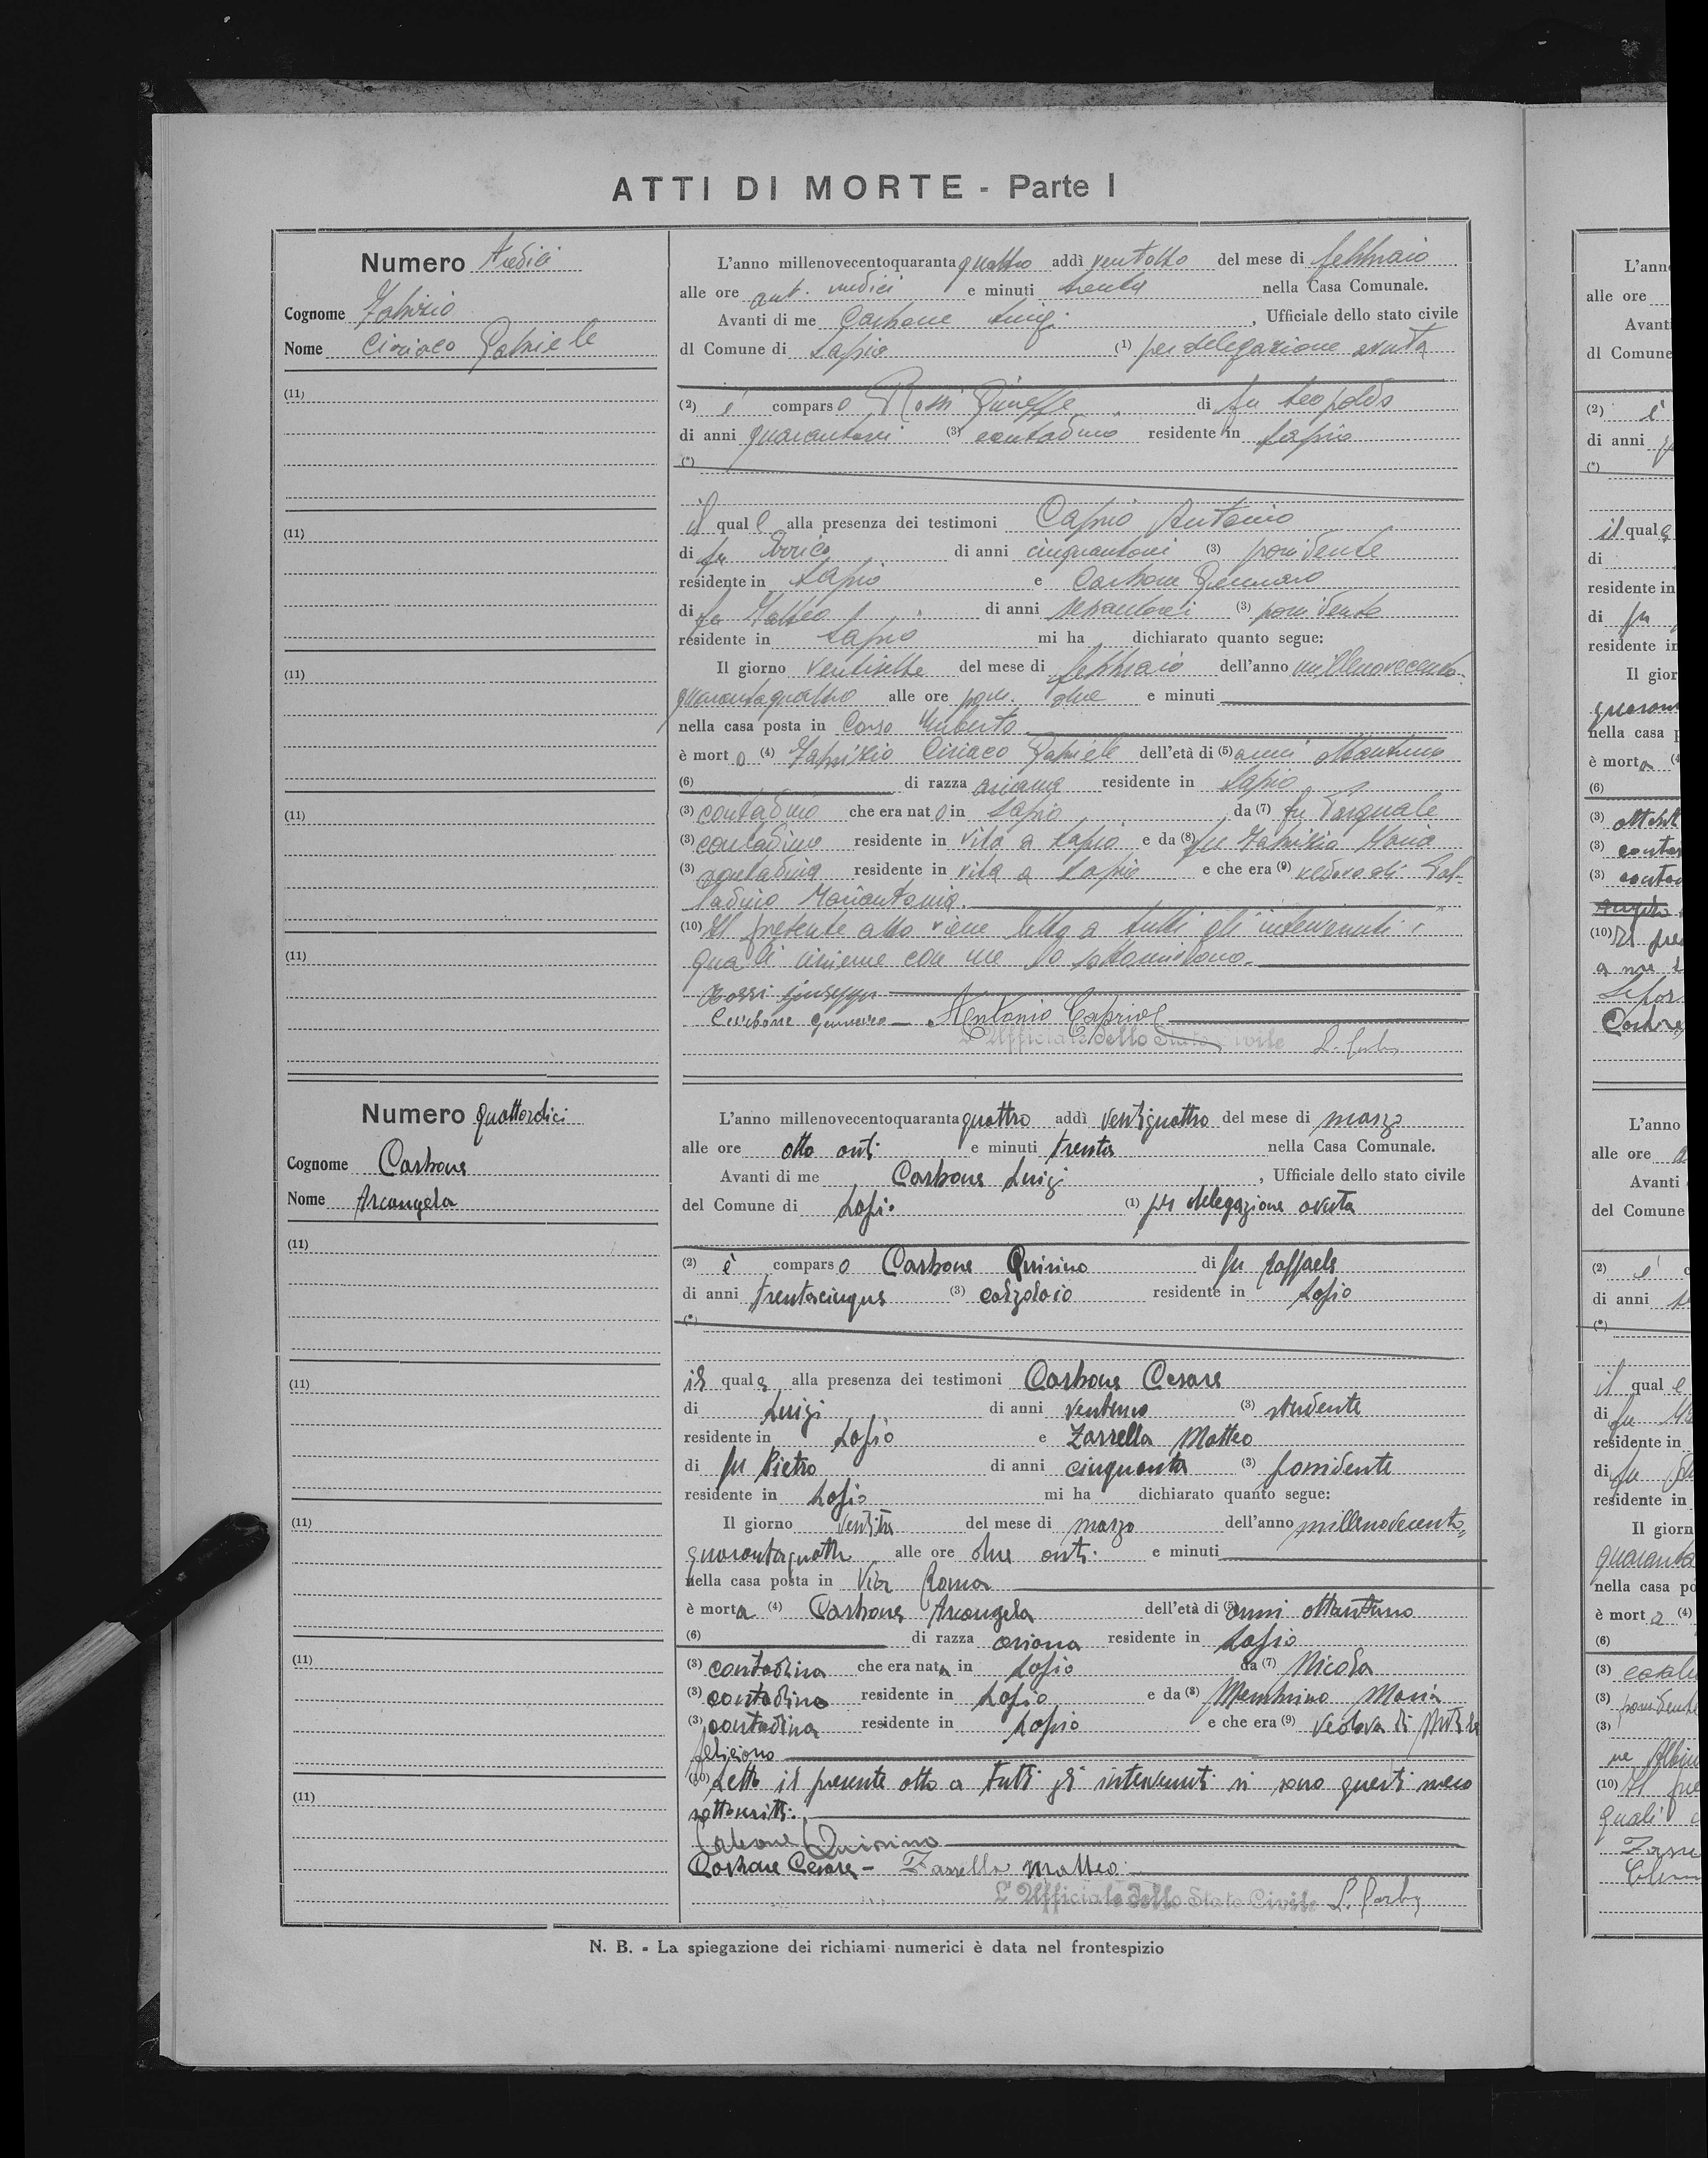 ATTI DI MORTE - Parte I
Numero tredici
Cognome Fabrizio
Nome Ciriaco Gabriele
(11)
(11)
(11)
(11)
(11)
L'anno millenovecentoquaranta quattro addì ventotto del mese di febbraio
alle ore ant. undici e minuti trenta nella Casa Comunale.
Avanti di me Carbone Luigi, Ufficiale dello stato civile
dl Comune di Lapio (1) per delegazione avuta
(2) è comparso Rossi Giuseppe di fu Leopoldo
di anni (3) contadino residente in Lapio
(*)
il quale alla presenza dei testimoni Caprio Antonio
di fu Errico di anni (3) possidente
residente in Lapio e Carbone Gennaro
di fu Matteo di anni (3) possidente
residente in Lapio mi ha dichiarato quanto segue:
Il giorno ventisette del mese di febbraio dell'anno millenovecento-
quarantaquattro alle ore pom. due e minuti
nella casa posta in Corso Umberto
è morto (4) Fabrizio Ciriaco Gabriele dell'età di (5) anni ottantuno
(6) di razza ariana residente in Lapio
(3) contadino che era nato in Lapio da (7) fu Pasquale
(3) contadino residente in vita a Lapio e da (8) fu Fabrizio Maria
(3) contadina residente in vita a Lapio e che era (9) vedovo di
Mariantonia.
(10) Il presente atto viene letto a tutti gli intervenuti i
quali insieme con me lo sottoscrivono.
Rossi Giuseppe
Carbone Gennaro - Antonio Caprio
L'Ufficiale dello Stato Civile L.
Numero quattordici
Cognome Carbone
Nome Arcangela
(11)
(11)
(11)
(11)
(11)
L'anno millenovecentoquaranta quattro addì ventiquattro del mese di marzo
alle ore otto anti e minuti trenta nella Casa Comunale.
Avanti di me Carbone Luigi, Ufficiale dello stato civile
del Comune di Lapio (1) per delegazione avuta
(2) è comparso Carbone Quirino di fu Raffaele
di anni trentacinque (3) calzolaio residente in Lapio
(*)
il quale alla presenza dei testimoni Carbone Cesare
di Luigi di anni ventuno (3) studente
residente in Lapio e Zarrella Matteo
di fu Pietro di anni cinquanta (3) possidente
residente in Lapio mi ha dichiarato quanto segue:
Il giorno ventitre del mese di marzo dell'anno millenovecento=
quarantaquattro alle ore due anti. e minuti
nella casa posta in Via Roma
è morta (4) Carbone Arcangela dell'età di (5) anni ottantuno
(6) di razza ariana residente in Lapio
(3) contadina che era nata in Lapio da (7) Nicola
(3) contadino residente in Lapio e da (8) Membrino Maria
(3) contadina residente in Lapio e che era (9) vedova di
Feliciano
(10) Letto il presente atto a tutti gli intervenuti si sono questi meco
sottoscritti.
Carbone Quirino
Carbone Cesare - Zarrella Matteo
L'Ufficiale dello Stato Civile L.
N. B. - La spiegazione dei richiami numerici è data nel frontespizio
L'anno
alle ore
Avanti
dl Comune
(2) è
di anni
(*)
il quale
di
residente in
di fu
residente in
Il gior
nella casa p
è morta (4
(6)
(3)
(3)
(3)
(10) Il pre
L'anno
alle ore
Avanti
del Comune
(2) è c
di anni
(*)
il quale
di fu
residente in
di fu
residente in
Il giorn
quaranta
nella casa po
è mort (4)
(6)
(3)
(3)
(3)
(10) Il pre
quali